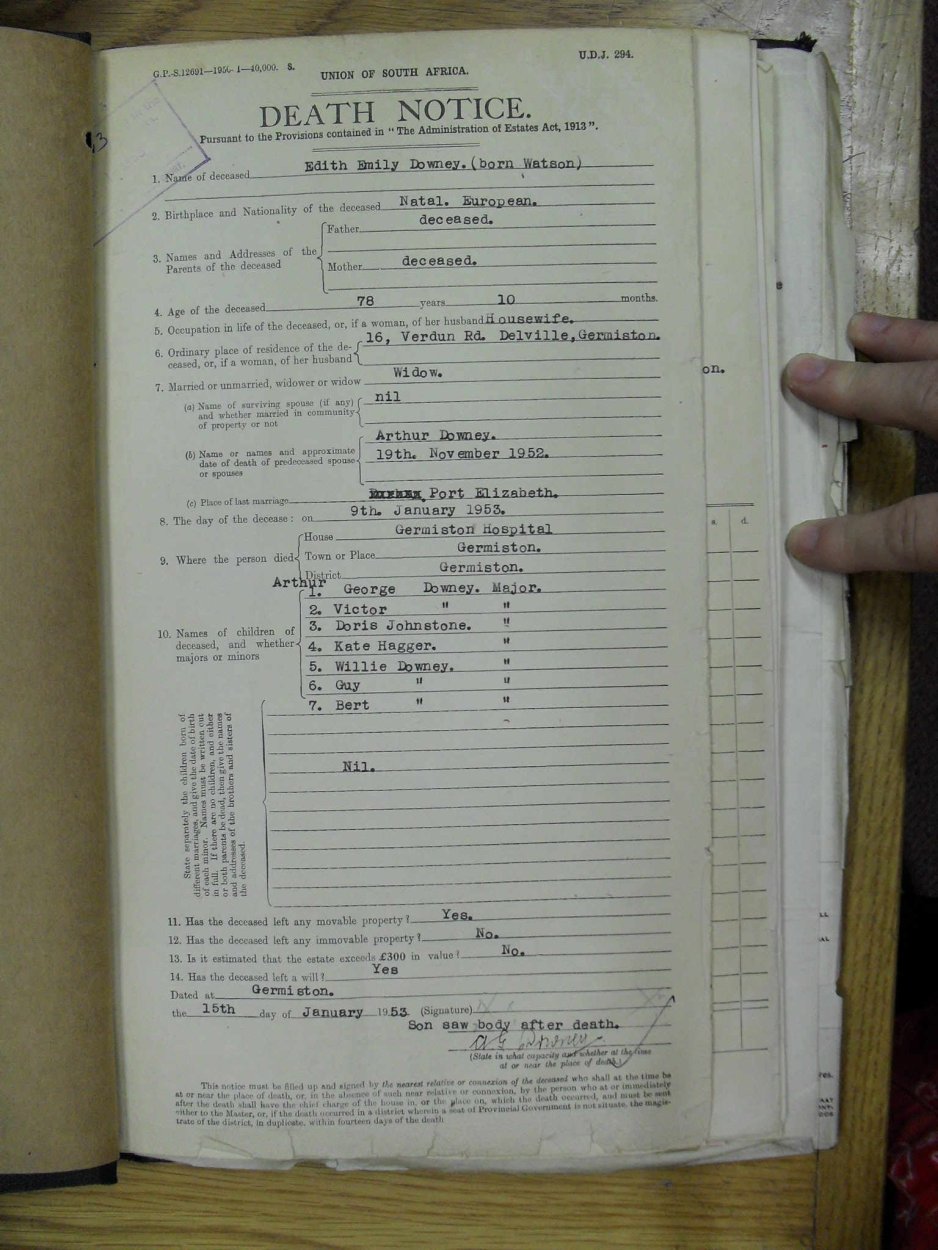 G.P.-S.12691—1950- 1—40,000. S.
U.D.J. 294.
UNION OF SOUTH AFRICA.
DEATH NOTICE.
Pursuant to the Provisions contained in "The Administration of Estates Act, 1913".
1. Name of deceased Edith Emily Downey. (born Watson)
2. Birthplace and Nationality of the deceased Natal. European.
3. Names and Addresses of the Parents of the deceased
Father deceased.
Mother deceased.
4. Age of the deceased 78 years 10 months.
5. Occupation in life of the deceased, or, if a woman, of her husband Housewife.
6. Ordinary place of residence of the de-
ceased, or, if a woman, of her husband
16, Verdun Rd. Delville, Germiston.
7. Married or unmarried, widower or widow Widow.
(a) Name of surviving spouse (if any)
and whether married in community
of property or not
nil
(b) Name or names and approximate
date of death of predeceased spouse
or spouses
Arthur Downey.
19th. November 1952.
(c) Place of last marriage Port Elizabeth.
8. The day of the decease: on 9th. January 1953.
9. Where the person died
House Germiston Hospital
Town or Place Germiston.
District Germiston.
10. Names of children of
deceased, and whether
majors or minors
Arthur
1. George Downey. Major.
2. Victor " "
3. Doris Johnstone. "
4. Kate Hagger. "
5. Willie Downey. "
6. Guy " "
7. Bert " "
State separately the children born of
different marriages, and give the date of birth
of each minor. Names must be written out
in full. If there are no children, and either
or both parents be dead, then give the names
and addresses of the brothers and sisters of
the deceased.
Nil.
11. Has the deceased left any movable property? Yes.
12. Has the deceased left any immovable property? No.
13. Is it estimated that the estate exceeds £300 in value? No.
14. Has the deceased left a will? Yes
Dated at Germiston.
the 15th day of January 1953. (Signature)
Son saw body after death.
A G Downey
(State in what capacity and whether at the time
at or near the place of death.)
This notice must be filled up and signed by the nearest relative or connexion of the deceased who shall at the time be
at or near the place of death, or, in the absence of such near relative or connexion, by the person who at or immediately
after the death shall have the chief charge of the house in, or the place on, which the death occurred, and must be sent
either to the Master, or, if the death occurred in a district wherein a seat of Provincial Government is not situate, the magis-
trate of the district, in duplicate, within fourteen days of the death
on.
s. d.